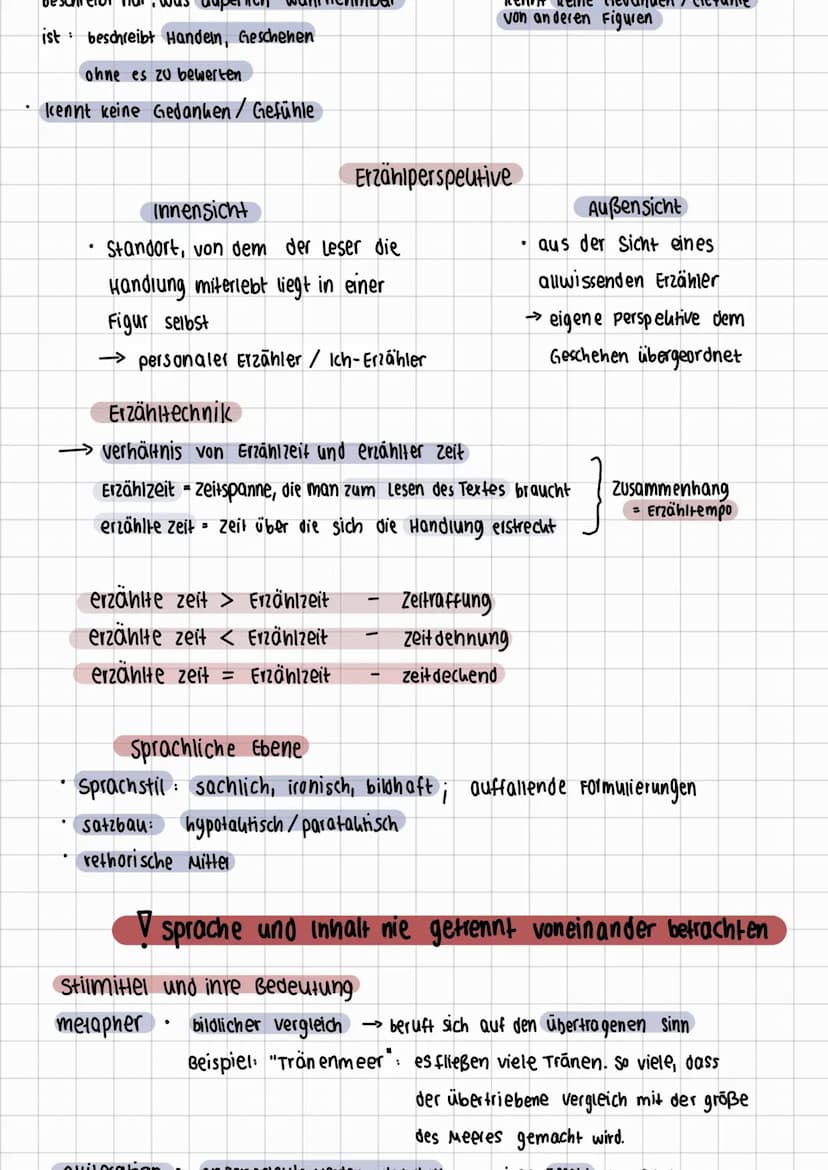 beschreibt nur, was äußerlich wahrnehmbar
ist: beschreibt Handeln, Geschehen
ohne es zu bewerten
· kennt keine Gedanken/Gefühle
kennt keine Gedanken/Gefühle
von anderen Figuren
Erzählperspektive
Innensicht
· Standort, von dem der Leser die
Handlung miterlebt liegt in einer
Figur selbst
→ personaler Erzähler / Ich-Erzähler
Außensicht
· aus der Sicht eines
allwissenden Erzähler
→ eigene Perspektive dem
Geschehen übergeordnet
Erzähltechnik
→ Verhältnis von Erzählzeit und erzählter Zeit
Erzählzeit = Zeitspanne, die man zum Lesen des Textes braucht
erzählte Zeit = Zeit über die sich die Handlung erstreckt
Zusammenhang
= Erzähltempo
erzählte Zeit > Erzählzeit - Zeitraffung
erzählte Zeit < Erzählzeit - Zeitdehnung
erzählte Zeit = Erzählzeit - zeitdeckend
Sprachliche Ebene
· Sprachstil: sachlich, ironisch, bildhaft; auffallende Formulierungen
· Satzbau: hypotaktisch/parataktisch
· rethorische Mittel
! Sprache und Inhalt nie getrennt voneinander betrachten
Stilmittel und ihre Bedeutung
Metapher · bildlicher Vergleich → beruft sich auf den übertragenen Sinn
Beispiel: "Tränenmeer": es fließen viele Tränen. So viele, dass
der übertriebene Vergleich mit der größe
des Meeres gemacht wird.